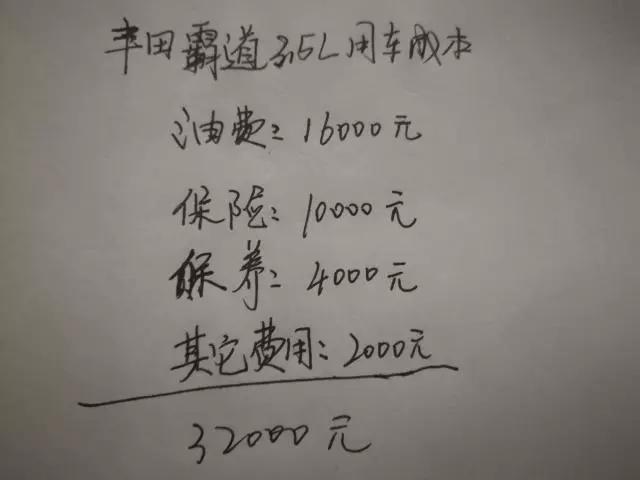 丰田霸道3.5L用车成本
油费：16000元
保险：10000元
保养：4000元
其它费用：2000元
32000元